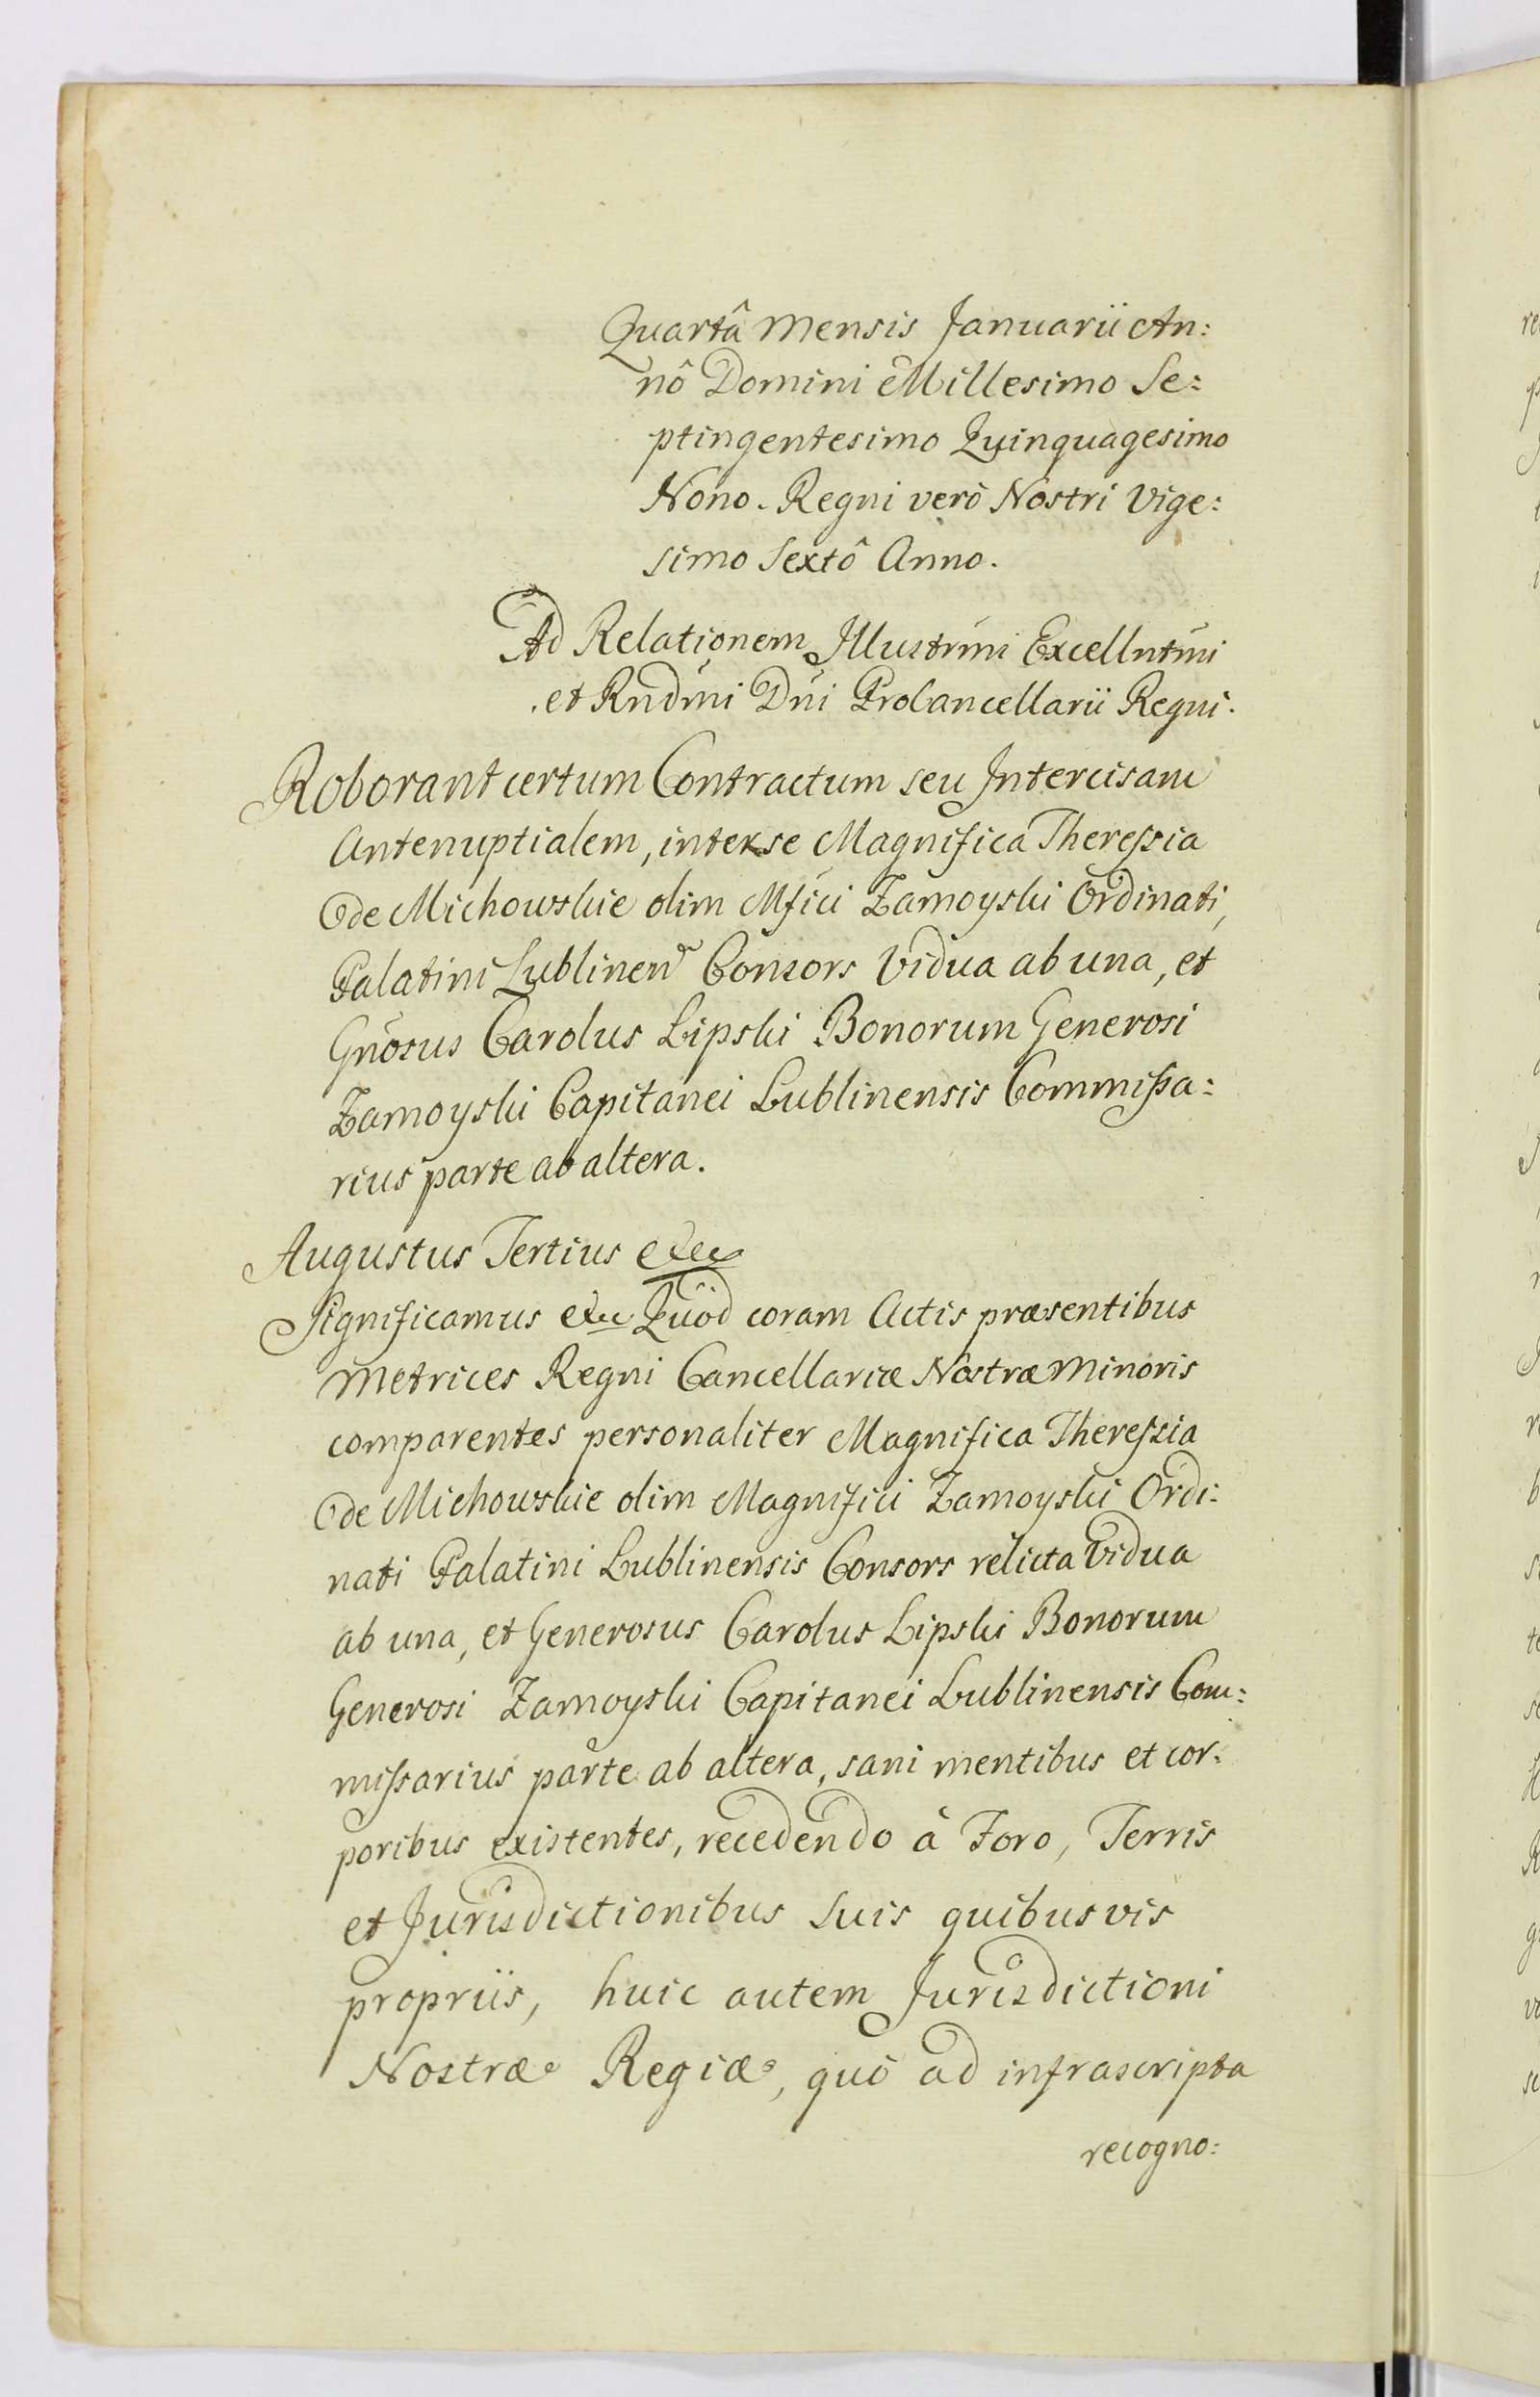 Quartâ Mensis Januarii An:
nô Domini Millesimo Se:
ptingentesimo Quinquagesimo
Nono. Regni verò Nostri Vige:
simo Sextô Anno.
Ad Relationem Illustrmi Excellntmi
et Rndmi Dni ProCancellarii Regni.
Roborant certum Contractum seu Intercisam
Antenuptialem, inter se Magnifica Theressia
de Michowskie olim Mfici Zamoyski Ordinati,
Palatini Lublinen Consors Vidua ab una, et
Gnosus Carolus Lipski Bonorum Generosi
Zamoyski Capitanei Lublinensis Commissa:
rius parte ab altera.
Augustus Tertius etc
Significamus etc Quòd coram Actis præsentibus
Metrices Regni Cancellariæ Nostræ Minoris
comparentes personaliter Magnifica Theressia
de Michowskie olim Magnifici Zamoyski Ordi:
nati Palatini Lublinensis Consors relicta Vidua
ab una, et Generosus Carolus Lipski Bonorum
Generosi Zamoyski Capitanei Lublinensis Com:
missarius parte ab altera, sani mentibus et cor:
poribus existentes, recedendo à Foro, Terris
et Jurisdictionibus Suis quibusvis
propriis, huic autem Jurisdictioni
Nostræ Regiæ, quò ad infrascripta
recogno: